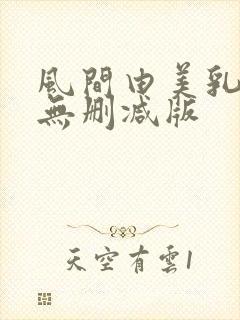 風間由美乳
無删减版
天空有雲1